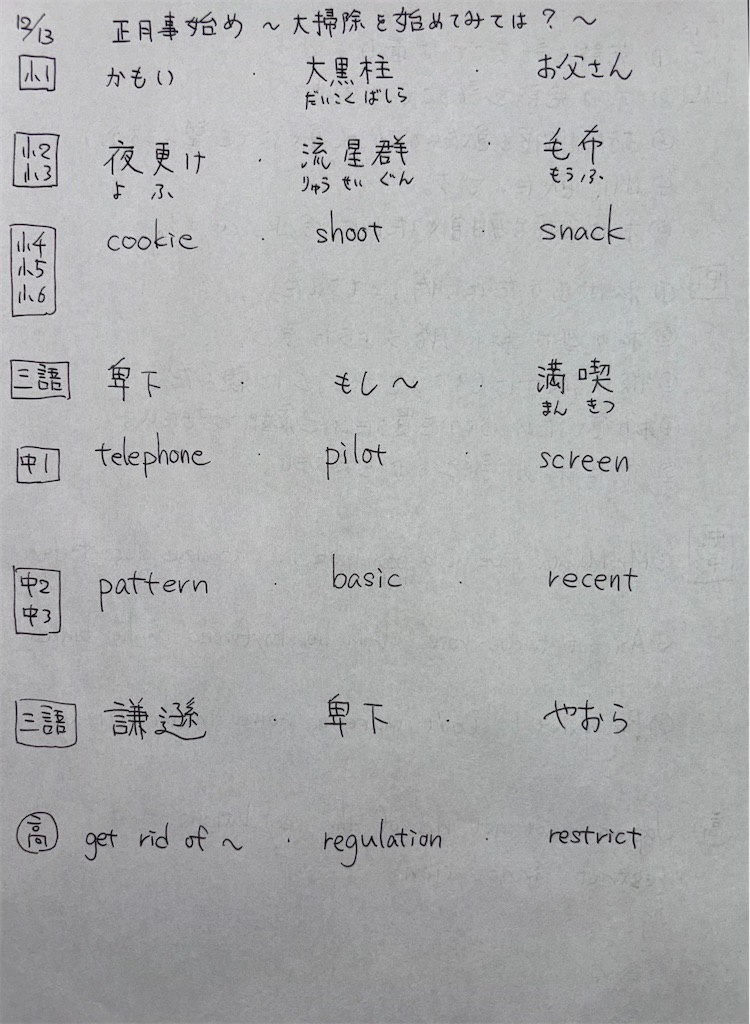 12/13 正月事始め ～大掃除を始めてみては？～
小1 かもい ・ 大黒柱 ・ お父さん
だいこくばしら
小2 小3 夜更け ・ 流星群 ・ 毛布
よ ふ りゅう せい ぐん もう ふ
小4 小5 小6 cookie ・ shoot ・ snack
三語 卑下 ・ もし～ ・ 満喫
まん きつ
中1 telephone ・ pilot ・ screen
中2 中3 pattern ・ basic ・ recent
三語 謙遜 ・ 卑下 ・ やおら
高 get rid of ～ ・ regulation ・ restrict